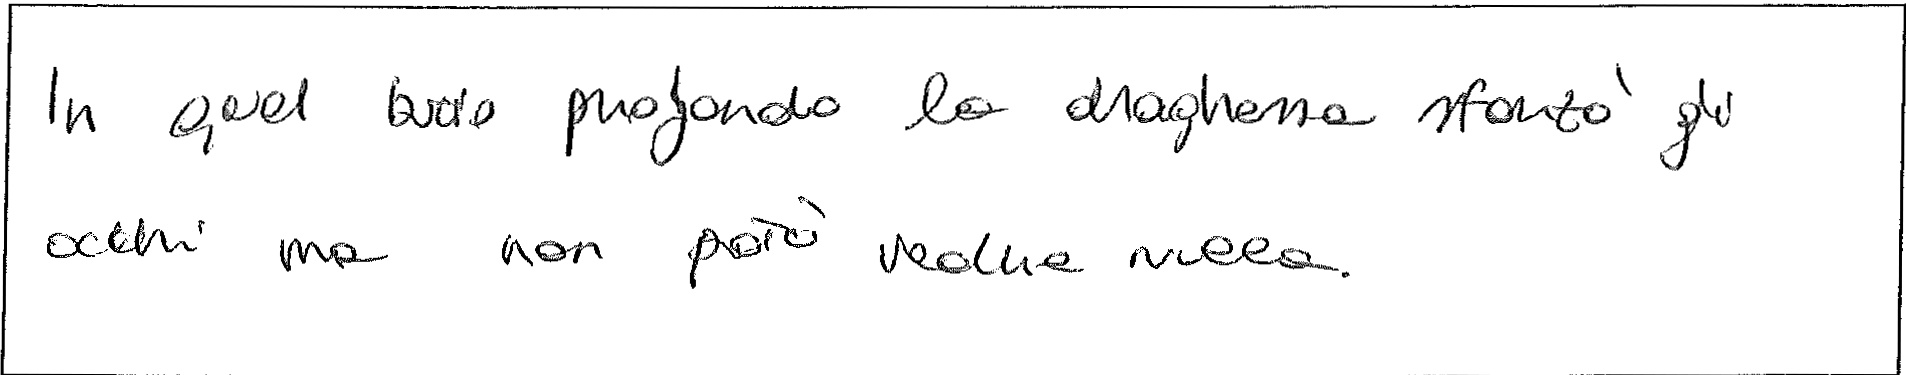 In quel buio profondo la draghessa sforzò gli
occhi ma non potò vedere nulla.